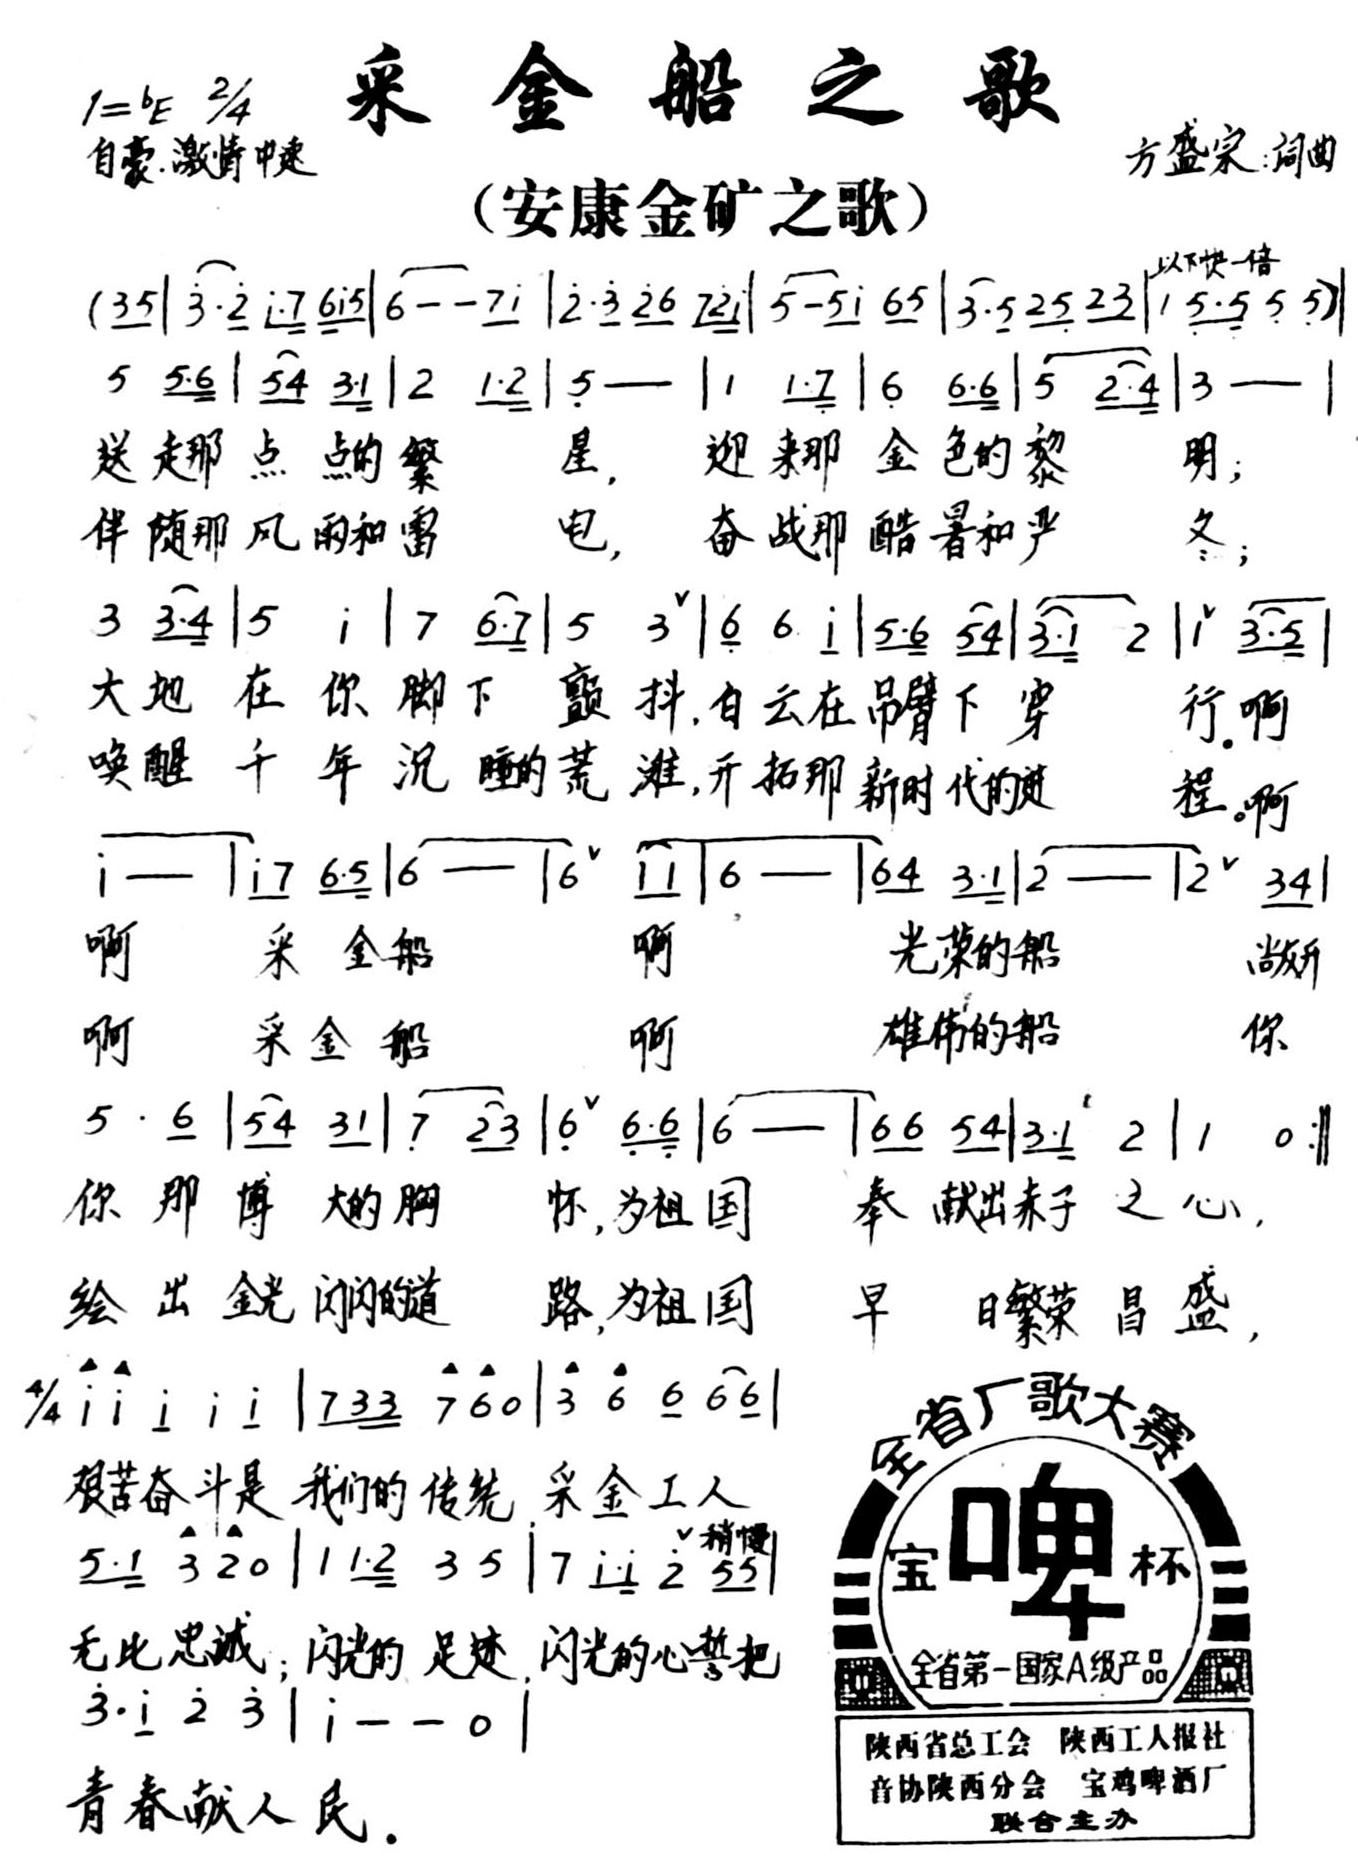 采金船之歌
1=♭E 2/4
自豪.激情中速
方盛宗:词曲
(安康金矿之歌)
以下快一倍
(35|3·2 i·7 6i5|6--7i|2·3 26 72i|5-5i 65|3·5 25 23|1 5·5 5 5)|
5 5·6|54 3·1|2 1·2|5—|1 1·7|6 6·6|5 2·4|3—|
送走那点点的繁星,迎来那金色的黎明;
伴随那风雨和雷电,奋战那酷暑和严冬;
3 3·4|5 i|7 6·7|5 3ˇ|6 6 i|5·6 54|3·1 2|1ˇ 3·5|
大地在你脚下颤抖,白云在吊臂下穿行。啊
唤醒千年沉睡的荒滩,开拓那新时代的进程。啊
i—|i7 6·5|6—|6ˇ i i|6—|64 3·1|2—|2ˇ 34|
啊采金船啊光荣的船敞开
啊采金船啊雄伟的船你
5·6|54 31|7 23|6ˇ 6·6|6—|66 54|3·1 2|1 0:‖
你那博大的胸怀,为祖国奉献出赤子之心,
绘出金光闪闪的道路,为祖国早日繁荣昌盛,
4/4 i i i i i|733 760|3 6 6 66|
艰苦奋斗是我们的传统 采金工人
稍慢
5·1 3 2 0|1 1·2 3 5|7 i·i 2ˇ 55|
无比忠诚;闪光的足迹,闪光的心誓把
3·i 2 3|i--0|
青春献人民.
全省厂歌大赛
宝啤杯
全省第一国家A级产品
陕西省总工会 陕西工人报社
音协陕西分会 宝鸡啤酒厂
联合主办